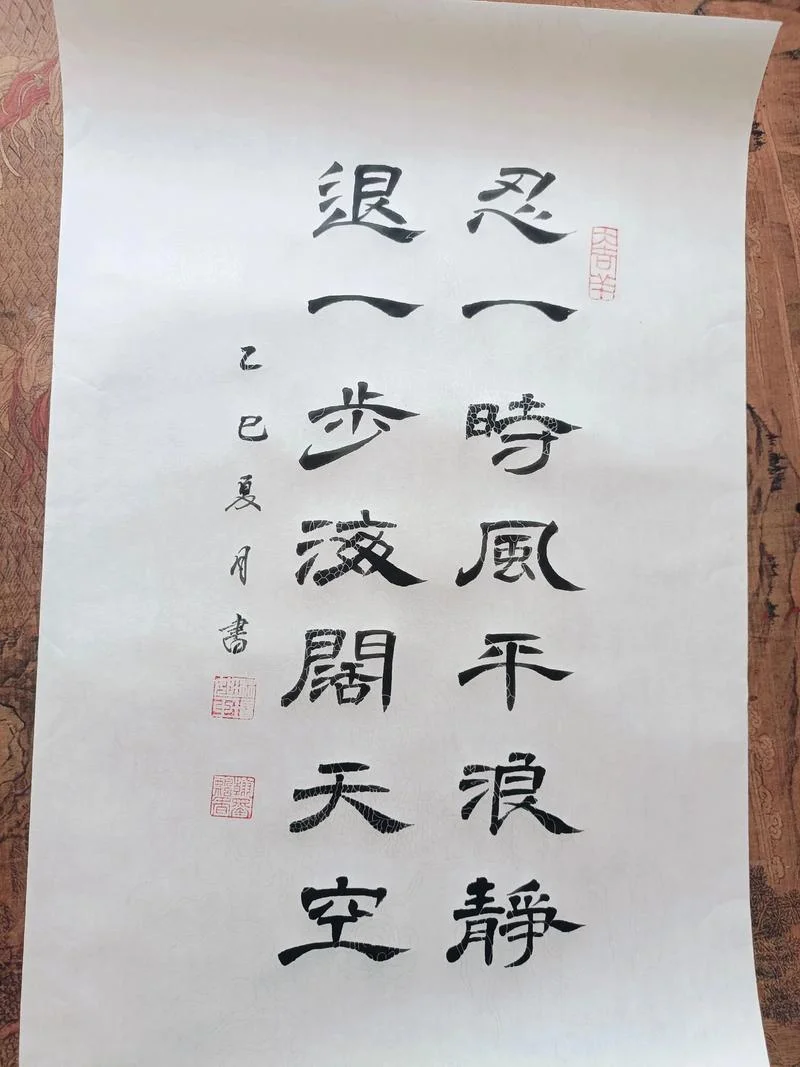 忍一時風平浪靜
退一步海闊天空
乙巳夏月書
大吉羊